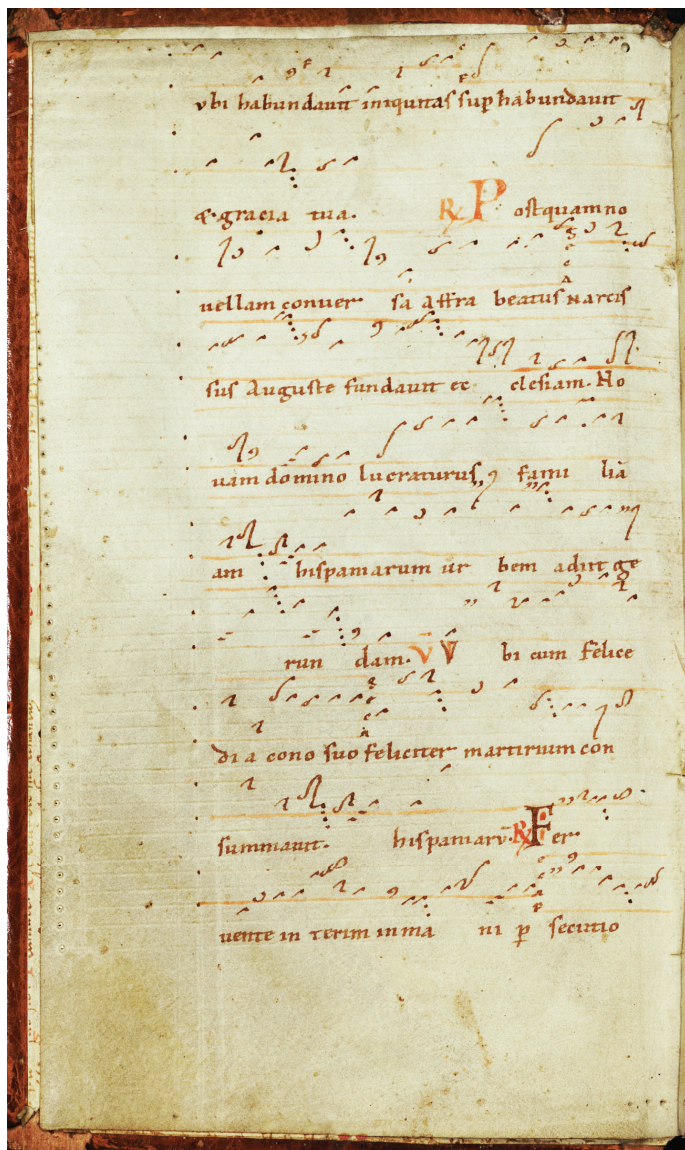 vbi habundauit iniquitas sup habundauit
& gracia tua. R Postquam no
uellam conuer sa Affra beatus Narcis
sus Auguste fundauit ec clesiam. No
uam domino lucraturus fami liā
am hispamarum ur bem adiit ge
run dam. V Vbi cum felice
diacono suo feliciter martirium con
summauit. hispamarū. R Fer
uente in terim inma ni ꝑ secutio